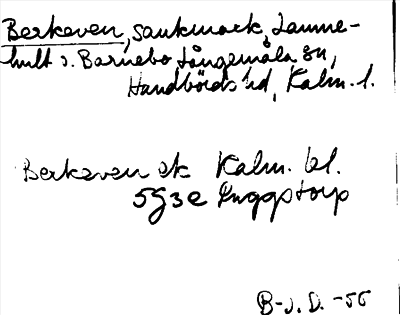 Berkeven, sankmark, Lamme-
hult o. Barnebo, Långemåla sn,
Handbörds hd, Kalm. l.
Berkeven ek Kalm. bl.
5G3e Ruggstorp
B-s. D. -56